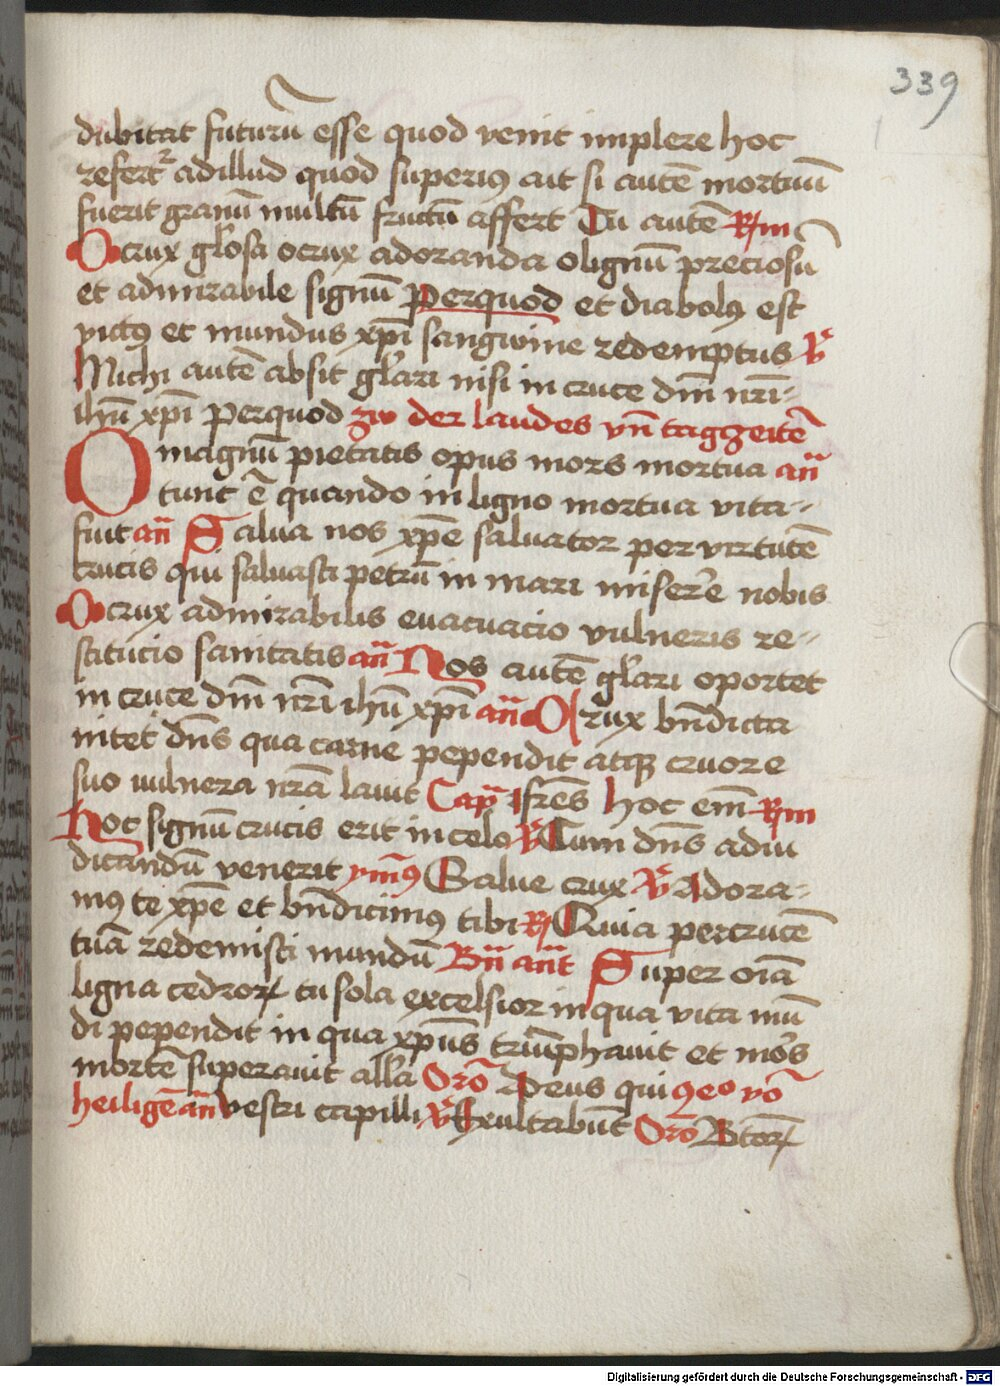 339
dubitat futurū esse quod venit implere hoc
refertᷣ adillud quod superiꝰ ait si autē mortuū
fuerit granū multū fructū affert Tu autē R̸m
O crux gl̄osa ocrux adoranda olignū preciosū
et admirabile signū Perquod et diabolꝰ est
victꝰ et mundus xp̄i sangwine redemptus V̄
Michi autē absit gl̄ari nisi in cruce dn̄i nr̄i-
ih̄u xp̄i Perquod zu der laudes vn̄ tagzeitē
O magnū pietatis opus mors mortua an̄
tunc ē quando in ligno mortua vita-
fuit an̄ Salua nos xp̄e saluator per virtutē
crucis qui saluasti petrū in mari miser̄e nobis
O crux admirabilis euacuacio vulneris re-
stitucio sanitatis an̄ Nos autē gl̄ari oportet
in cruce dn̄i nr̄i ih̄u xp̄i an̄ Crux bn̄dicta
nitet dn̄s qua carne pependit atqꝫ cruore
suo vulnera nr̄a lauit Cap̄ fr̄es hoc em̄ R̸m
Hoc signū crucis erit in celo V̄ Cum dn̄s adiu
dicandū venerit ym̄ꝰ Salue crux V̄ Adora-
mꝰ te xp̄e et bn̄dicimꝰ tibi R̸ Quia percrucē
tuā redemisti mundū Bn̄ an̄t Super oīa
ligna cedroꝝ tu sola excelsior in qua vita mū
di pependit in qua xp̄us triūphauit et mor̄s
mortē superauit all̄a Or̄o Deus qui ꝯeo vō
heiligē an̄ vestri capilli V̄ Exultabūt Or̄o Btoꝝ
Digitalisierung gefördert durch die Deutsche Forschungsgemeinschaft - DFG